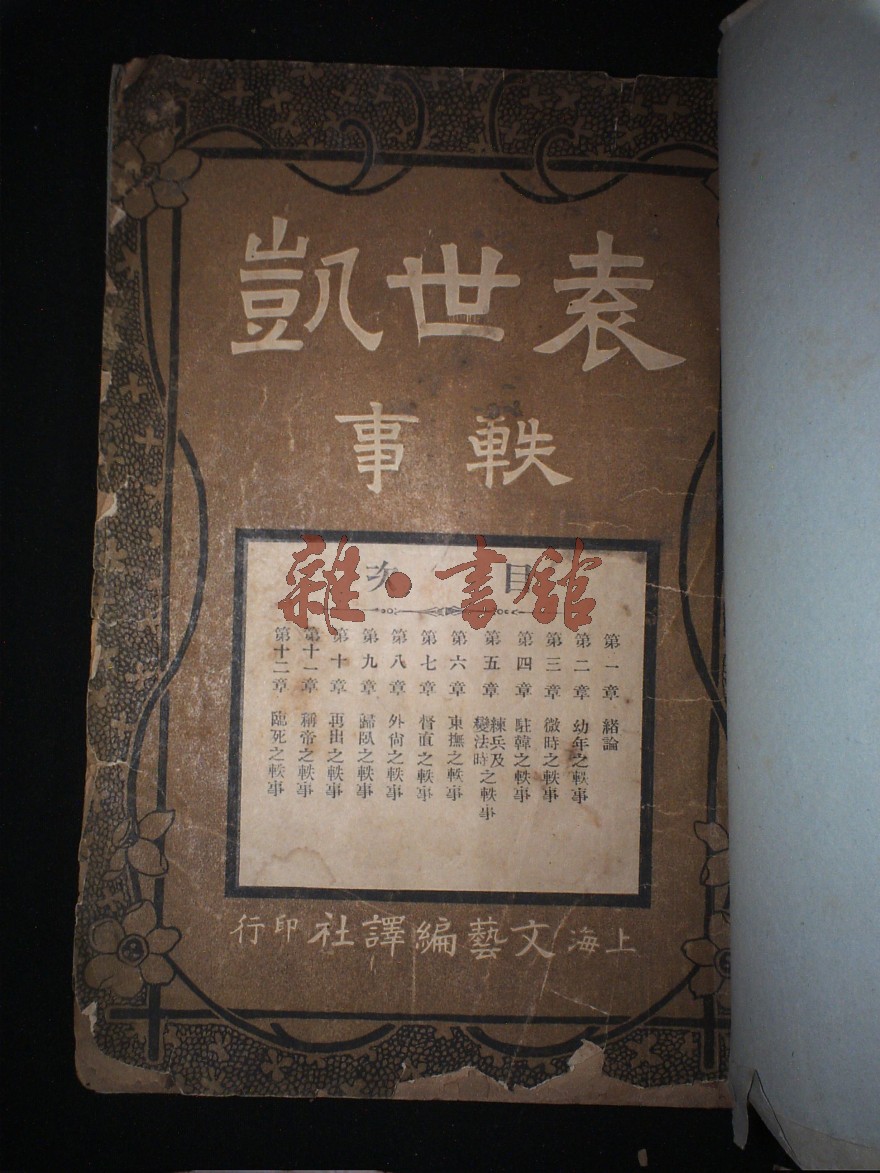 袁世凱
軼事
目次
雜·書館
第一章 緒論
第二章 幼年之軼事
第三章 微時之軼事
第四章 駐韓之軼事
第五章 練兵及變法時之軼事
第六章 東撫之軼事
第七章 督直之軼事
第八章 外尙之軼事
第九章 歸臥之軼事
第十章 再出之軼事
第十一章 稱帝之軼事
第十二章 臨死之軼事
上海文藝編譯社印行